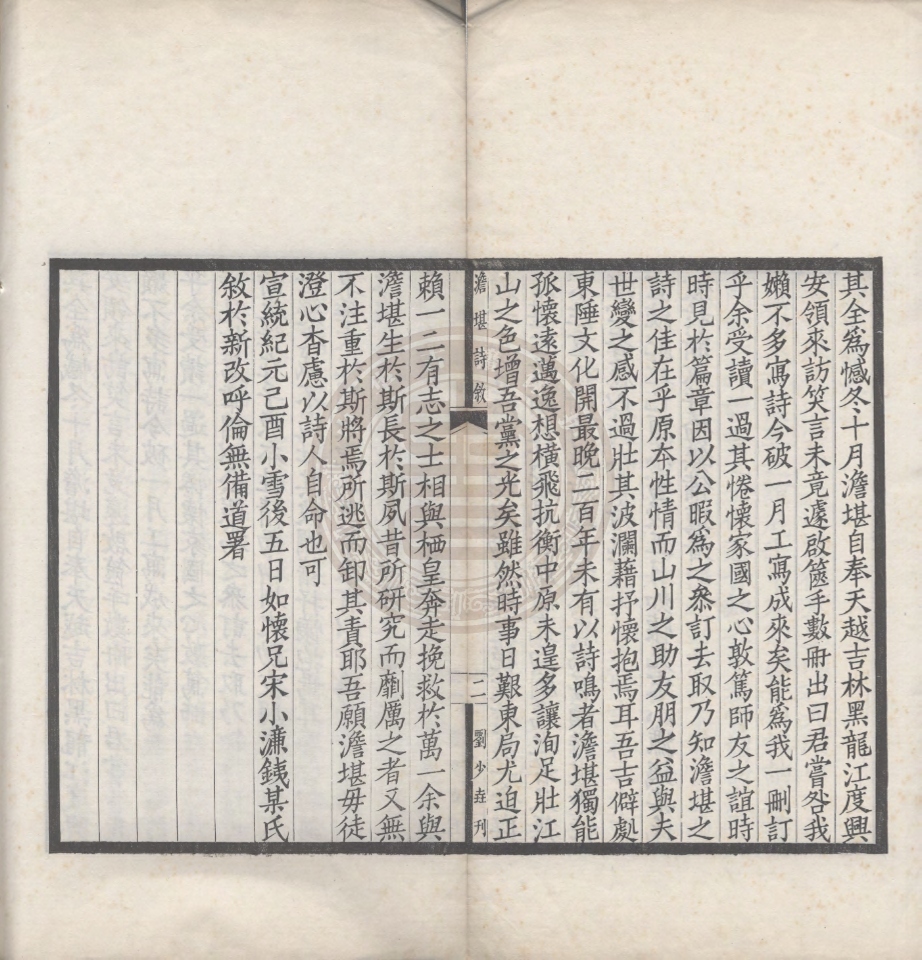 其全爲憾冬十月澹堪自奉天越吉林黑龍江度興
安領來訪笑言未竟遽啟篋手數冊出曰君嘗咎我
嬾不多寫詩今破一月工寫成來矣能爲我一刪訂
乎余受讀一過其惓懷家國之心敦篤師友之誼時
時見於篇章因以公暇爲之叅訂去取乃知澹堪之
詩之佳在乎原本性情而山川之助友朋之益與夫
世變之感不過壯其波瀾藉抒懷抱焉耳吾吉僻處
東陲文化開最晚二百年未有以詩鳴者澹堪獨能
孤懷遠邁逸想橫飛抗衡中原未遑多讓洵足壯江
山之色增吾黨之光矣雖然時事日艱東局尤迫正
澹堪詩敘
二
劉少垚刊
賴一二有志之士相與栖皇奔走挽救於萬一余與
澹堪生於斯長於斯夙昔所研究而劘厲之者又無
不注重於斯將焉所逃而卸其責耶吾願澹堪毋徒
澄心杳慮以詩人自命也可
宣統紀元己酉小雪後五日如懷兄宋小濂銕某氏
敘於新改呼倫兵備道署